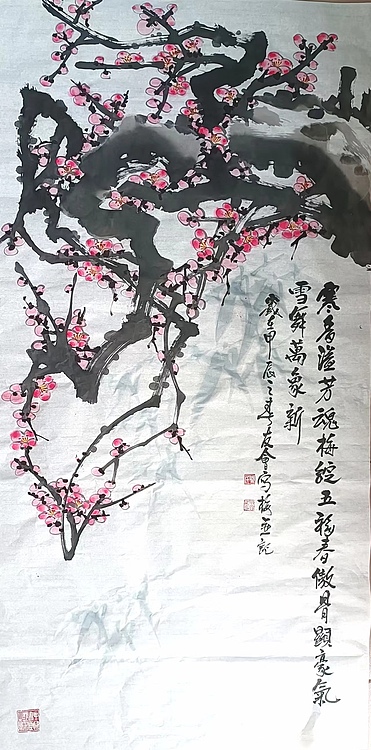 寒香溢芳魂梅綻五福春傲骨顯豪氣
雪舞萬象新
歲在甲辰之春友會寫梅並記